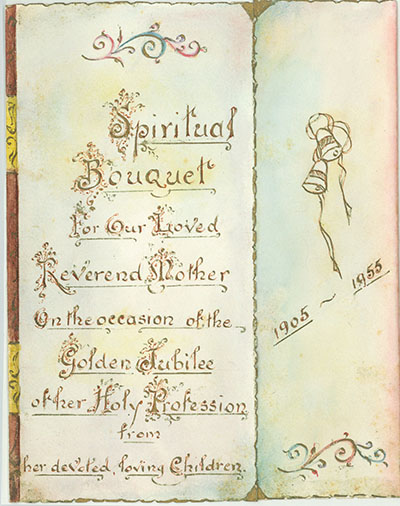 Spiritual
Bouquet
For Our Loved
Reverend Mother
On the occasion of the
Golden Jubilee
of her Holy Profession
from
her devoted, loving Children.
1905 ~ 1955